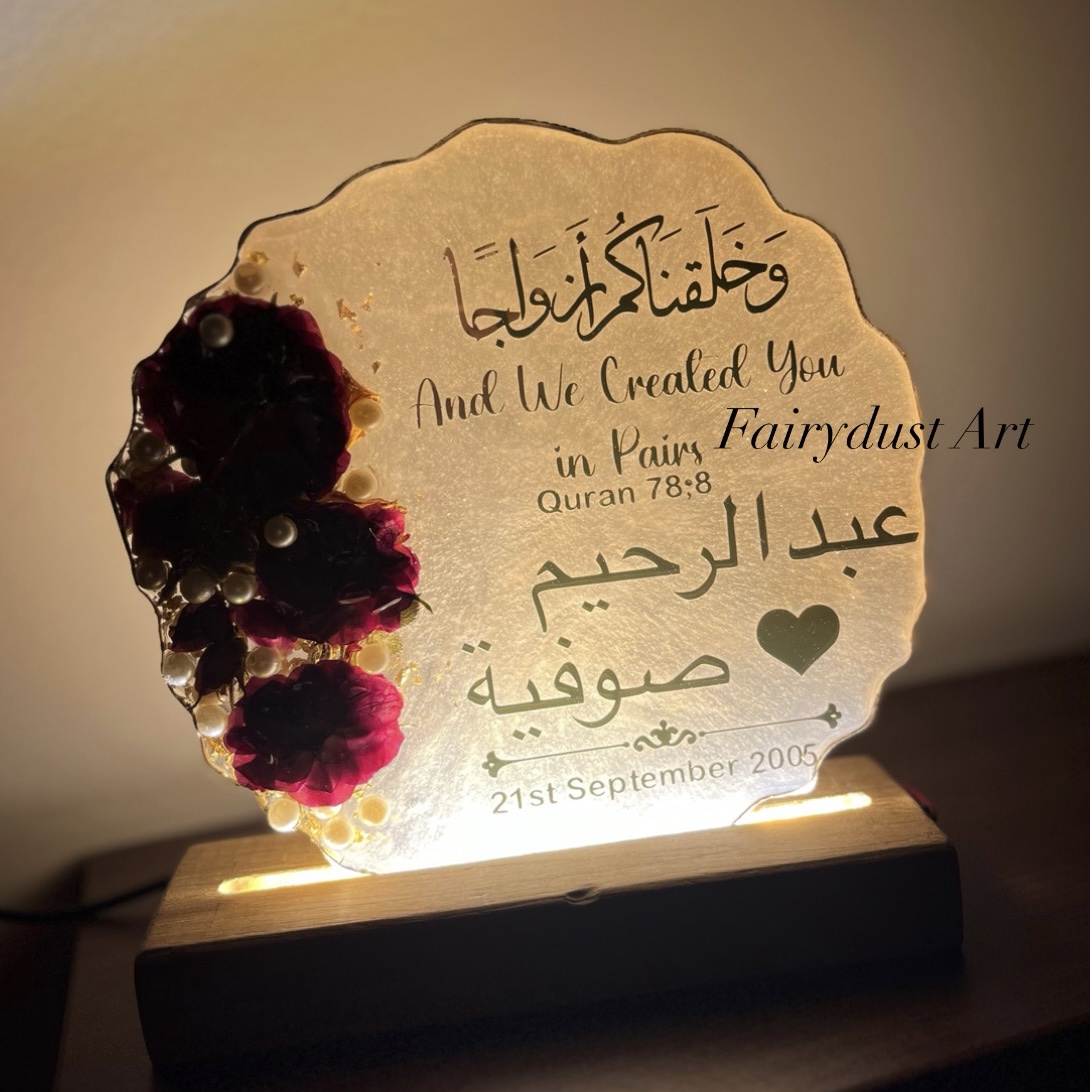 وَخَلَقْنَاكُمْ أَزْوَاجًا
And We Created You
in Pairs
Fairydust Art
Quran 78;8
عبد الرحيم
صوفية
21st September 2005